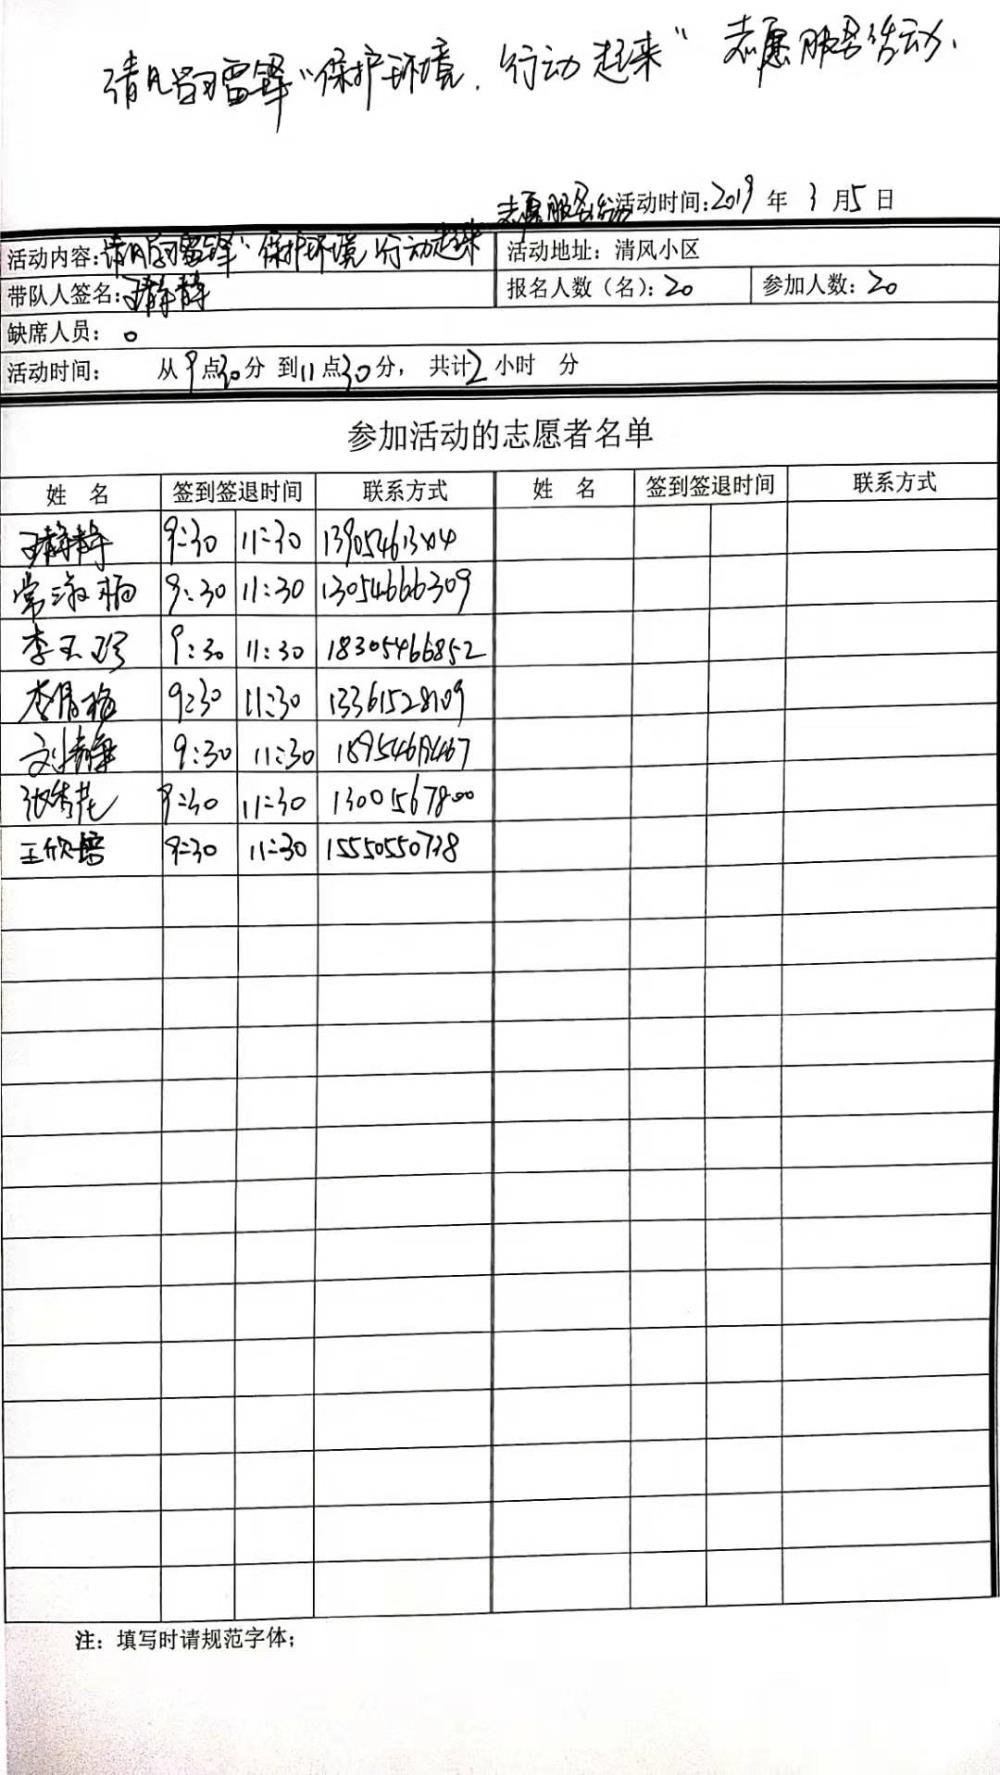 清风学习雷锋"保护环境、行动起来"志愿服务活动.
志愿服务活动 活动时间:2019 年 3 月 5 日
活动内容:清风学习雷锋"保护环境 行动起来 活动地址:清风小区
带队人签名:王静静 报名人数(名):20 参加人数:20
缺席人员: 0
活动时间: 从 9 点 30 分 到 11 点 30 分, 共计 2 小时 分
参加活动的志愿者名单
姓 名 签到签退时间 联系方式 姓 名 签到签退时间 联系方式
王静静 9:30 11:30
常淑梅 9:30 11:30 13054666309
李玉珍 9:30 11:30 18305466852
李清梅 9:30 11:30 13361528109
刘静 9:30 11:30
张秀花 9:30 11:30 13001567800
王欣培 9:30 11:30 15550550738
注:填写时请规范字体;